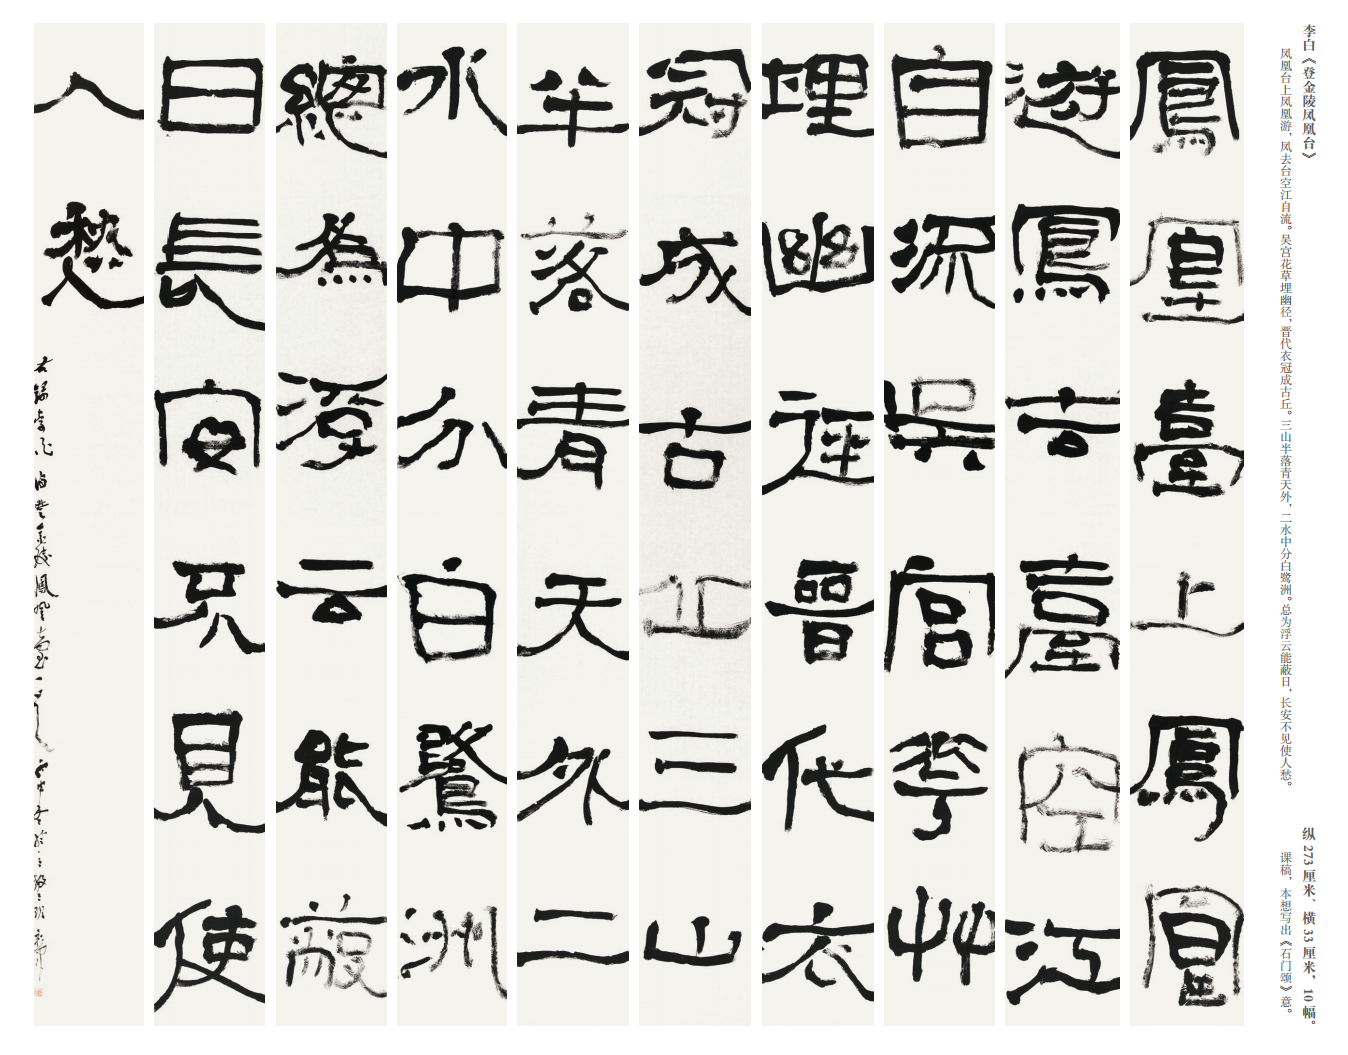 李白《登金陵凤凰台》
凤凰台上凤凰游，凤去台空江自流。吴宫花草埋幽径，晋代衣冠成古丘。三山半落青天外，二水中分白鹭洲。总为浮云能蔽日，长安不见使人愁。
纵 273 厘米、横 33 厘米，10 幅。
课稿，本想写出《石门颂》意。
鳳凰臺上鳳凰
遊鳳去臺空江
自流吳宮花艸
埋幽徑晉代衣
冠成古丘三山
半落青天外二
水中分白鷺洲
總為浮云能蔽
日長安不見使
人愁
右錄李白詩登金陵鳳凰臺一首